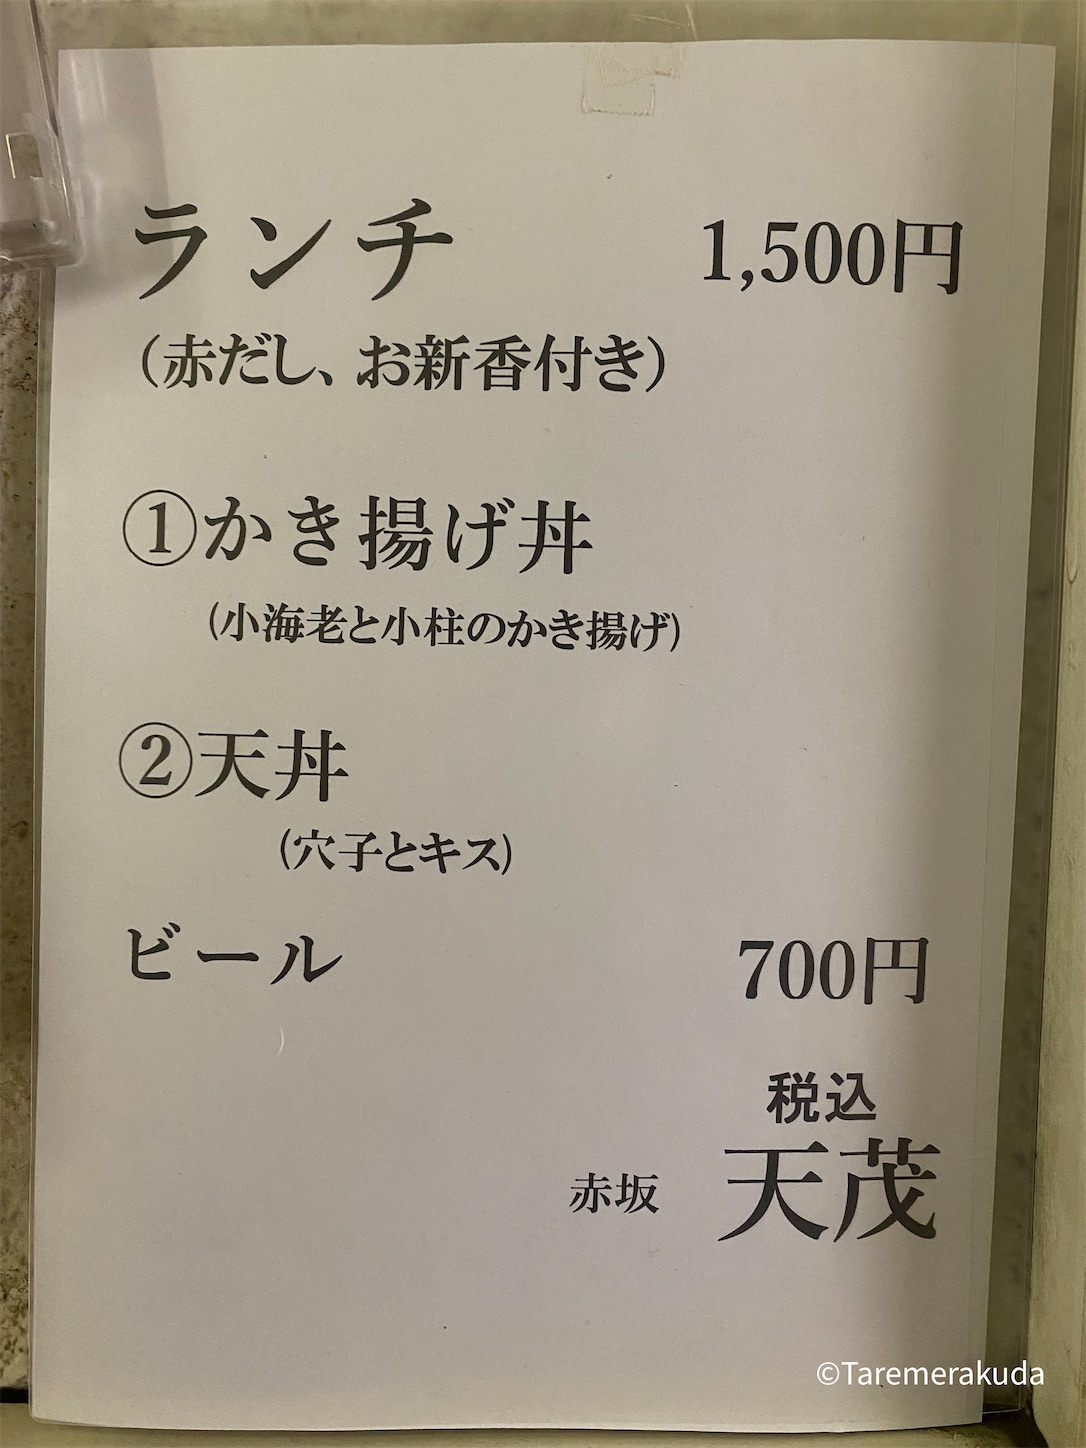 ランチ 1,500円
（赤だし、お新香付き）
①かき揚げ丼
(小海老と小柱のかき揚げ)
②天丼
(穴子とキス)
ビール 700円
税込
赤坂 天茂
©Taremerakuda